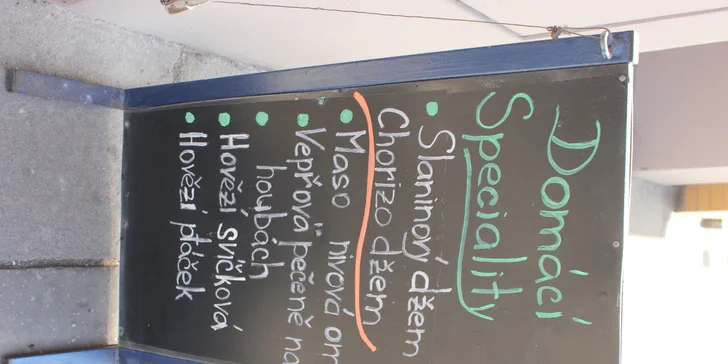 Domácí
Speciality
Slaninový džem
Chorizo džem
Maso nivová om
Vepřová pečeně na
houbách
Hovězí svíčková
Hovězí ptáček